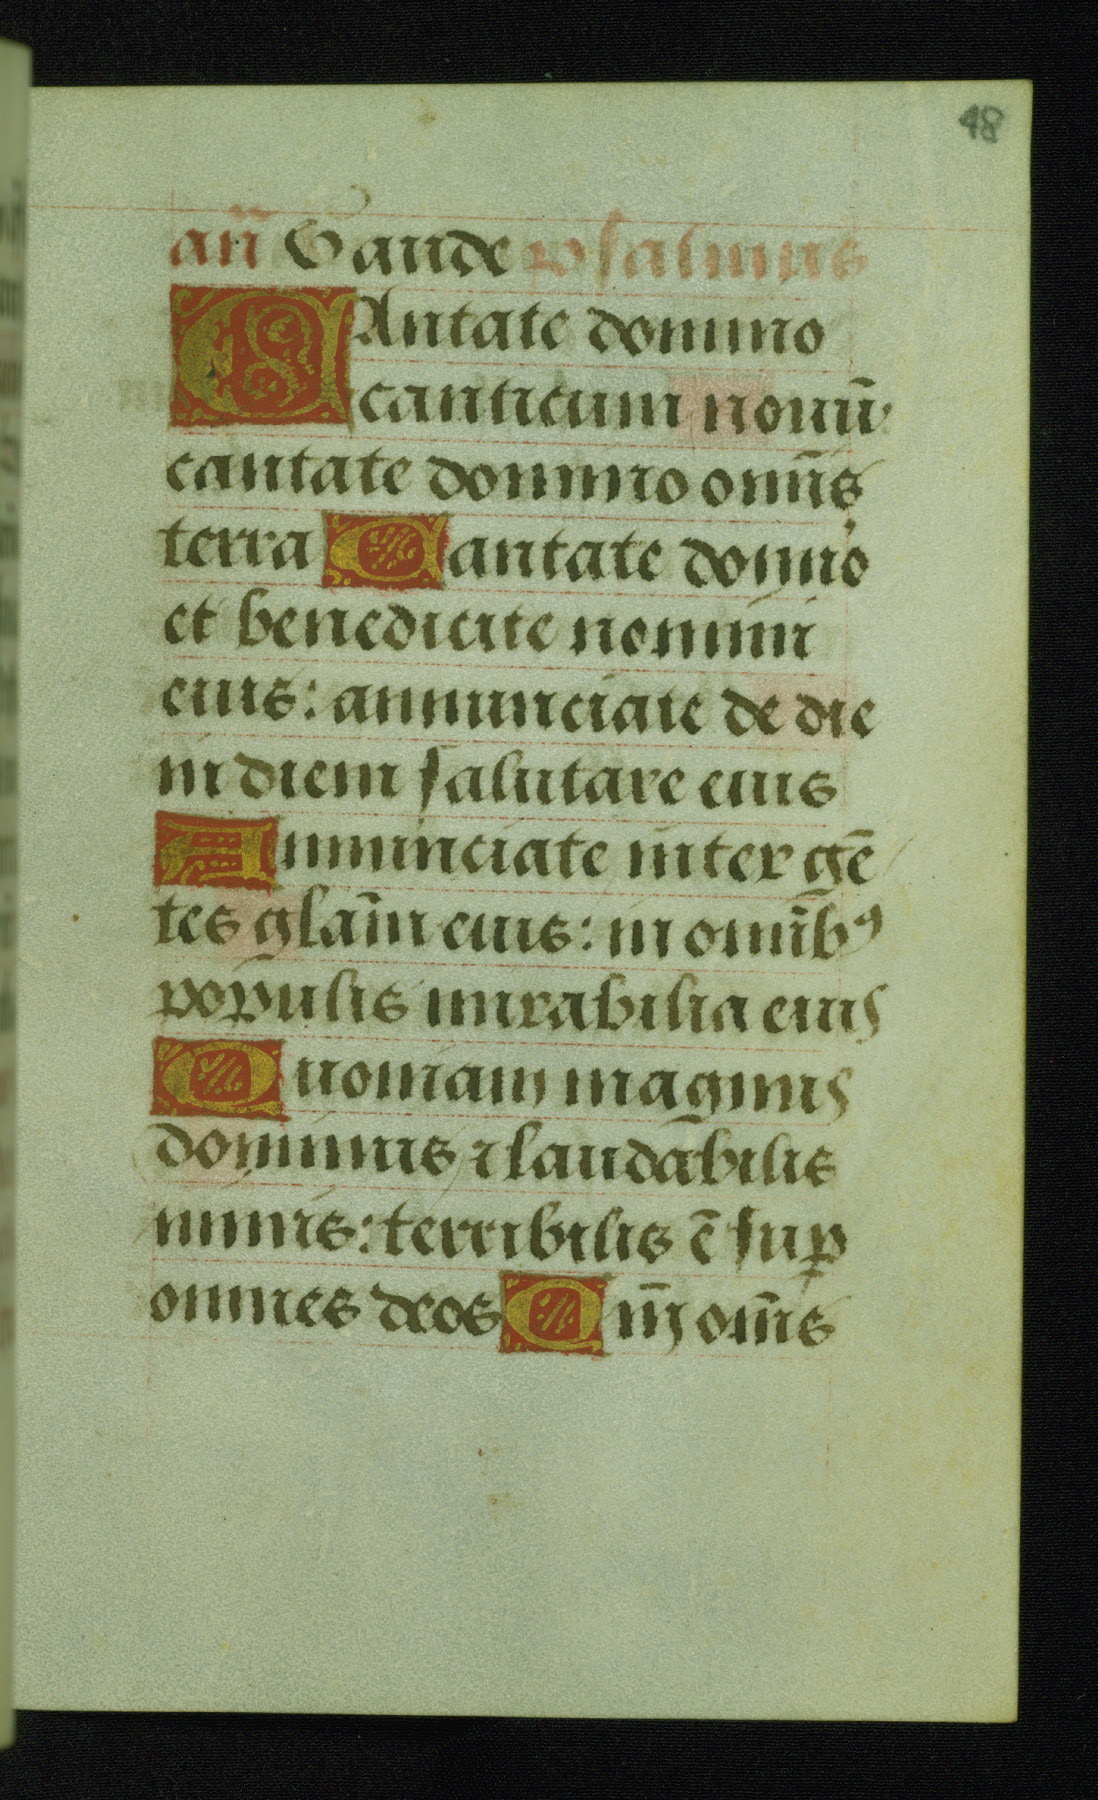 48
añ Gaude psalmus
CAntate domino
canticum nouũ
cantate domino omñs
terra Cantate domno
et benedicite nomini
eius: annunciate de die
in diem salutare eius
Annunciate inter gẽ
tes glãm eius: in omĩbꝰ
populis mirabilia eius
Quoniam magnus
dominus ⁊ laudabilis
nimis: terribilis ẽ suꝑ
omnes deos Qm̃ om̃s